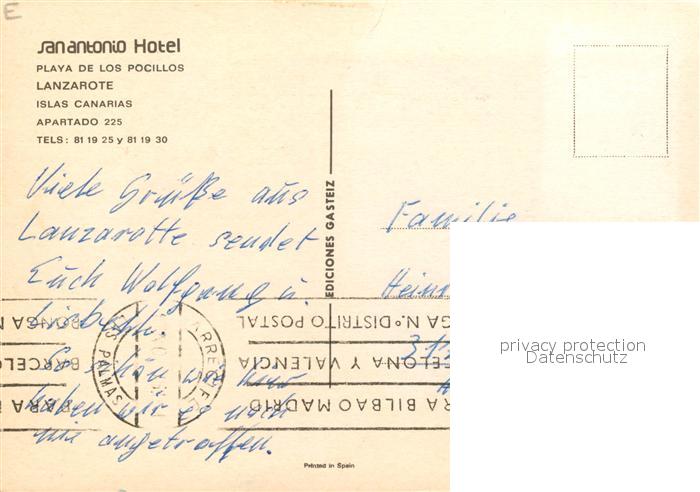 E
san antonio Hotel
PLAYA DE LOS POCILLOS
LANZAROTE
ISLAS CANARIAS
APARTADO 225
TELS: 81 19 25 y 81 19 30
Viele Grüße aus
Lanzarotte sendet
Euch Wolfgang u.
So schön wie hier
haben wir es noch
nie angetroffen.
EDICIONES GASTEIZ
Familie
Hein
313
PARA BILBAO MADRID
BARCELONA Y VALENCIA
PONGA N.º DISTRITO POSTAL
ARRECIFE
LAS PALMAS
privacy protection
Datenschutz
Printed in Spain